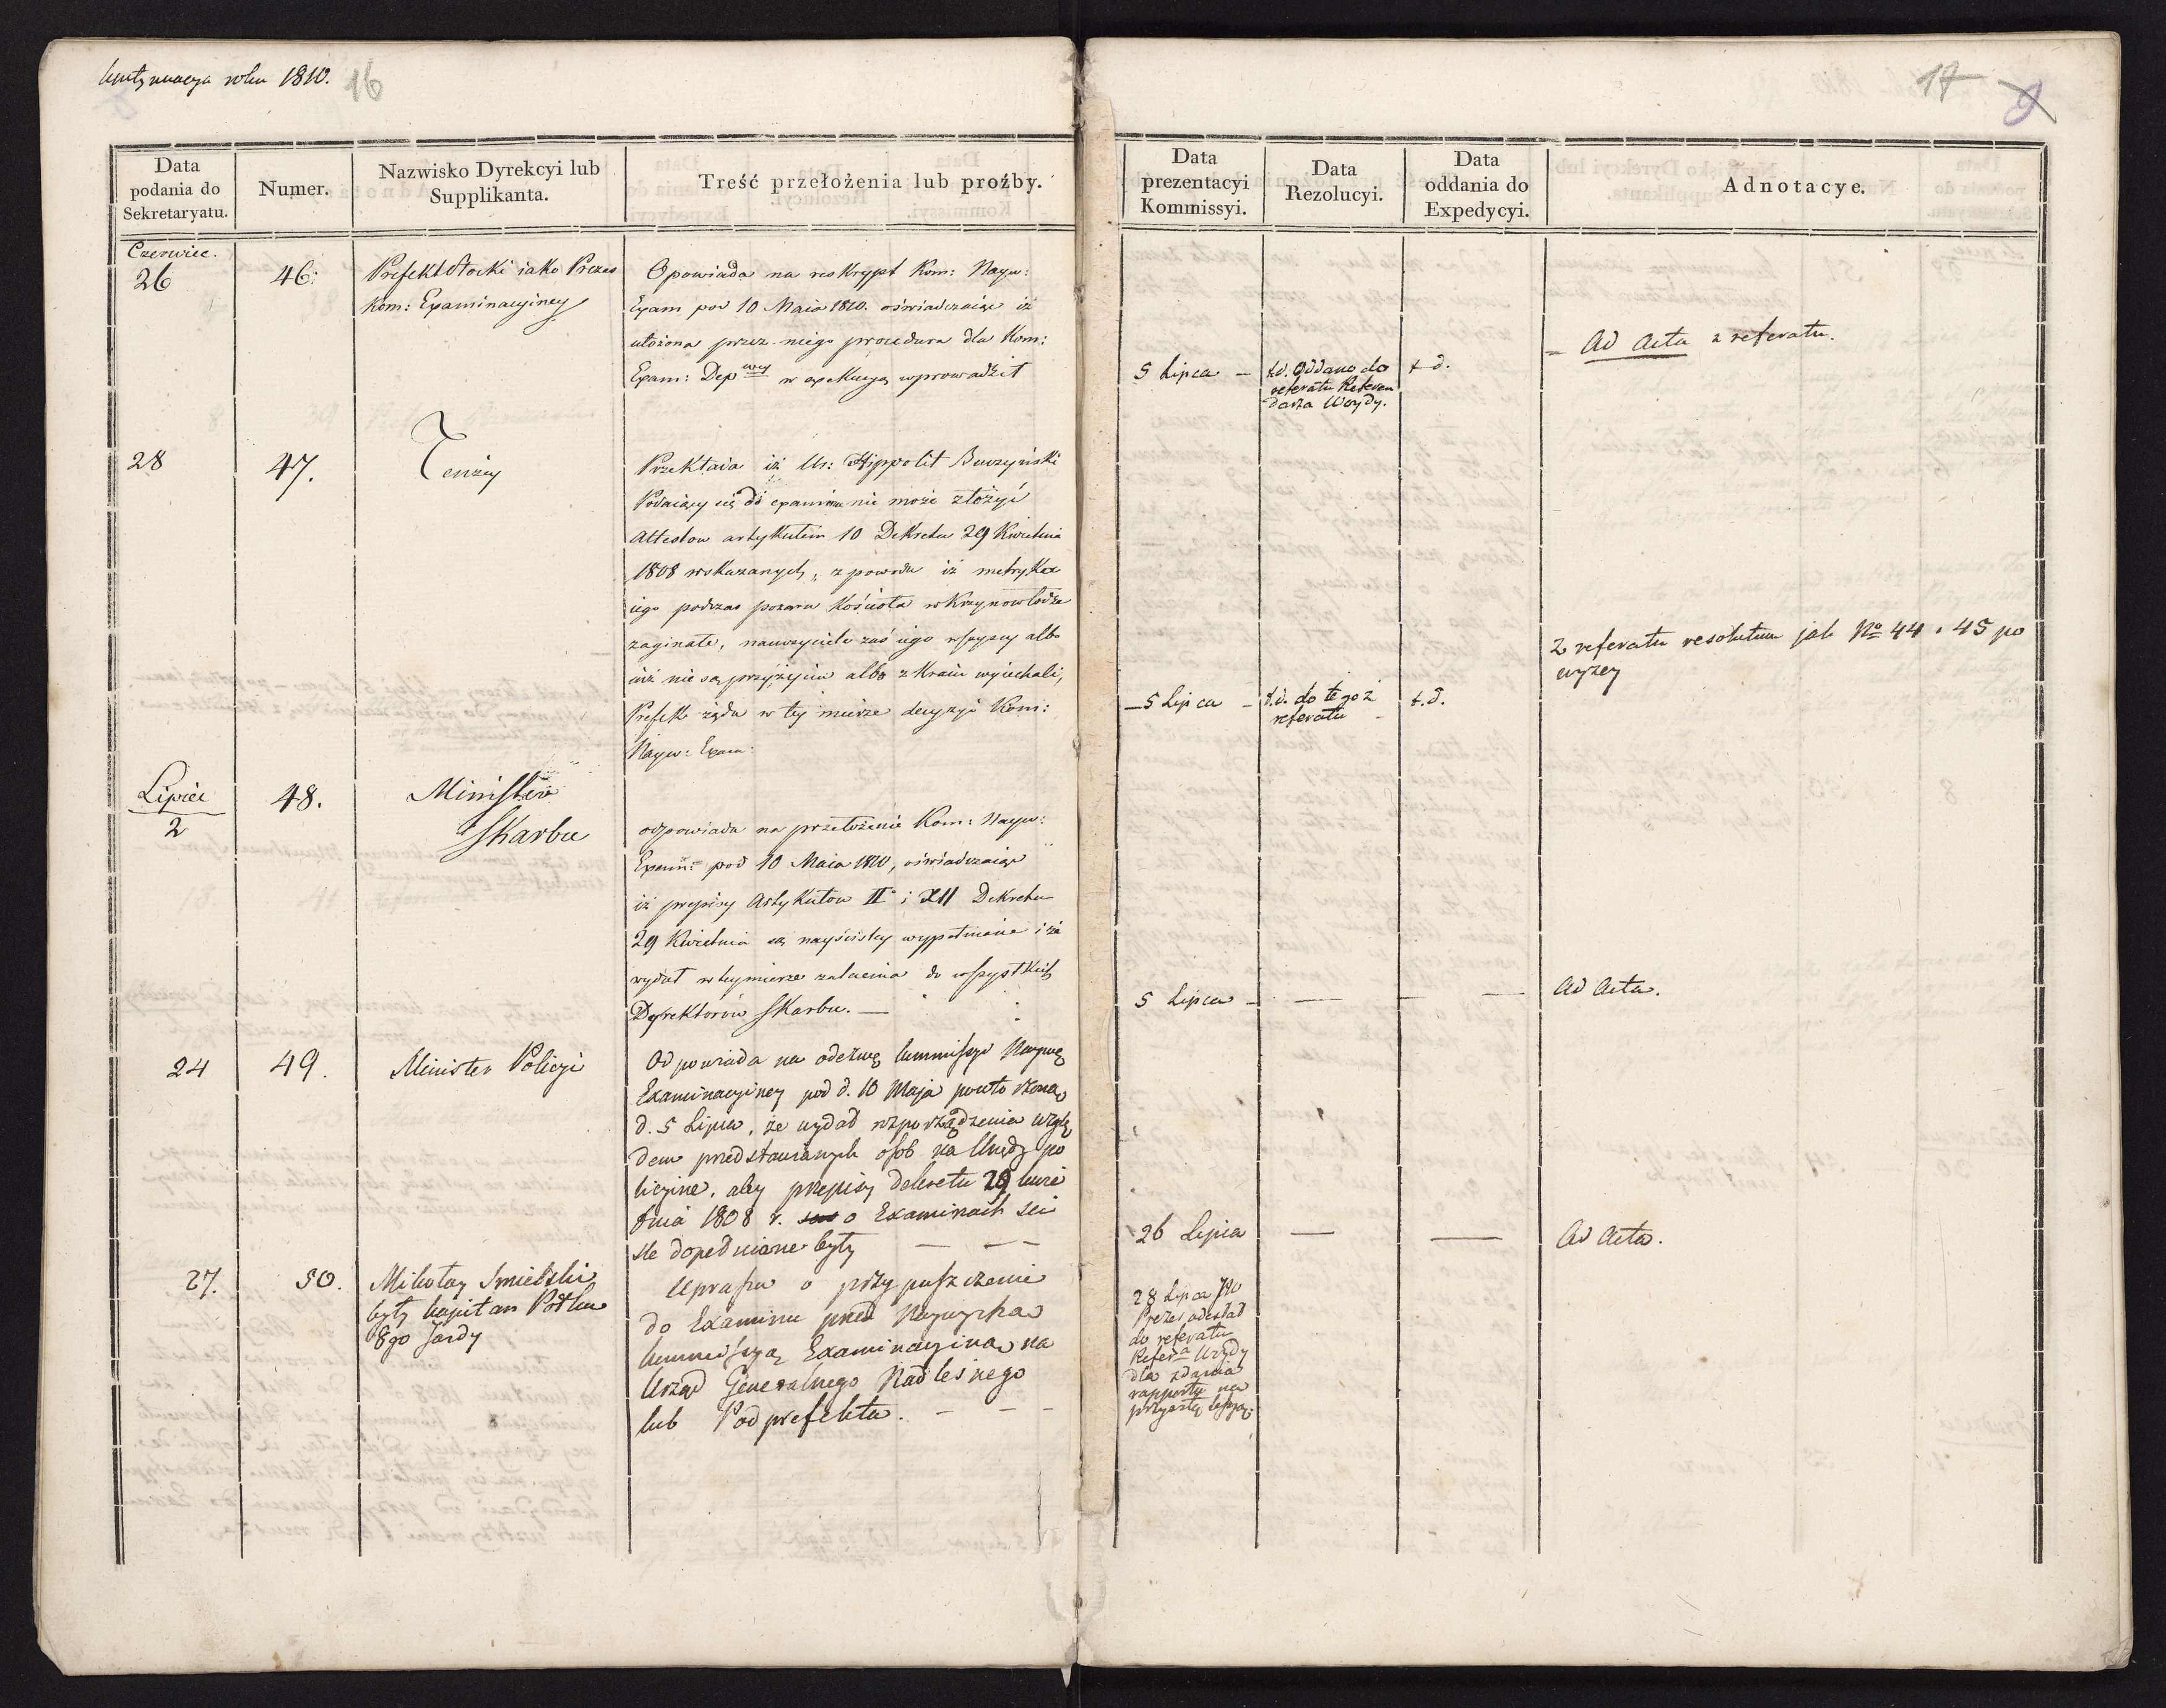 kontynuacya roku 1810. 16
Data
podania do
Sekretaryatu.
Numer.
Nazwisko Dyrekcyi lub
Supplikanta.
Treść przełożenia lub proźby.
Czerwiec.
26
46:
Prefekt Płocki iako Prezes
Kom: Examinacyiney
Opowiada na reskrypt Kom: Nayw:
Exam pod 10 Maia 1810. oświadczaiąc iż
ułożona przez niego procedura dla Kom:
Exam: Dep wey w exekucyą wprowadził
28
47.
Tenże
Przekłada iż Ur: Hippolit Buczyński
Podaiący się do examinu nie może złożyć
Attestow artykułem 10 Dekretu 29 Kwietnia
1808 wskazanych, z powodu iż metryka
iego podczas pożaru kościoła w Krzynowłodze
zaginęła, nauczyciele zaś iego wszyscy albo
iuż nie są przy życiu albo z Kraiu wyiechali,
Prefekt żąda w tey mierze decyzyi Kom:
Nayw: Exam:
Lipiec
2
48.
Minister
Skarbu
odpowiada na przełożenie Kom: Nayw:
Exam: pod 10 Maia 1810, oświadczaiąc
iż przepisy Artykułow II i XII Dekretu
29 Kwietnia są nayściśley wypełniane i że
wydał w tey mierze zalecenia do wszystkich
Dyrektorów Skarbu. —
24
49.
Minister Policyi
Odpowiada na odezwę kommissyi Naywyż
Examinacyiney pod d. 10 Maja powtorzoną
d. 5 Lipca, że wydał rozporządzenia wzglę
dem przedstawianych osob na Urzędy po
licyine, aby przepisy dekretu 29 kwie
tnia 1808 r. o Examinach sci
sle dopełniane były — — —
27.
50.
Mikołay Smielski
były kapitan Półku
8go Jazdy
Uprasza o przypuszczenie
do Examinu przed Naywyższą
kommissyą Examinacyiną na
Urząd Generalnego Nadleśnego
lub Podprefekta. — — —
17 9
Data
prezentacyi
Kommissyi.
Data
Rezolucyi.
Data
oddania do
Expedycyi.
Adnotacye.
5 Lipca —
t.d. oddano do
referatu Referen
darza Woydy.
t. d.
= Ad Acta z referatu.
— 5 Lipca —
t.d. do tegoż
referatu —
t. d.
Z referatu resolutum jak No 44 i 45 po
wyżey
5 Lipca — — — —
Ad Acta.
26 Lipca — —
Ad Acta.
28 Lipca JW
Prezes odesłał
do referatu
Refera Woydy
dla zdania
rapportu na
przyszłą sessyą.